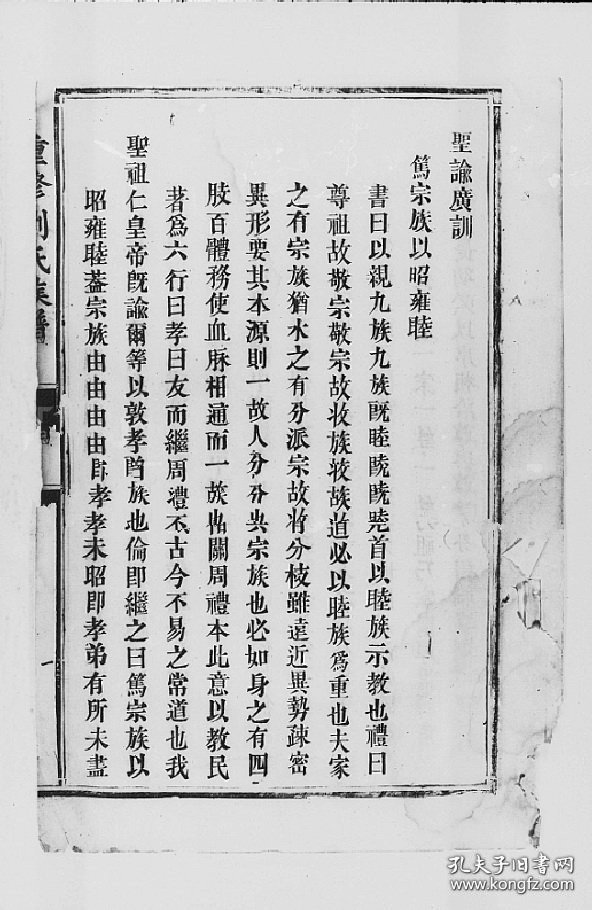 聖諭廣訓
篤宗族以昭雍睦
書曰以親九族九族既睦首以睦族示教也禮曰
尊祖故敬宗敬宗故收族道必以睦族為重也夫家
之有宗族猶水之有分派宗故分枝雖遠近異勢疎密
異形要其本源則一故人宗族也必如身之有四
肢百體務使血脉相通而一關周禮本此意以教民
著為六行曰孝曰友而繼周禮古今不易之常道也我
聖祖仁皇帝既諭爾等以敦孝族也倫即繼之曰篤宗族以
昭雍睦蓋宗族由由由由孝孝未昭即孝弟有所未盡
重修劉氏族譜
一
孔夫子旧书网
www.kongfz.com